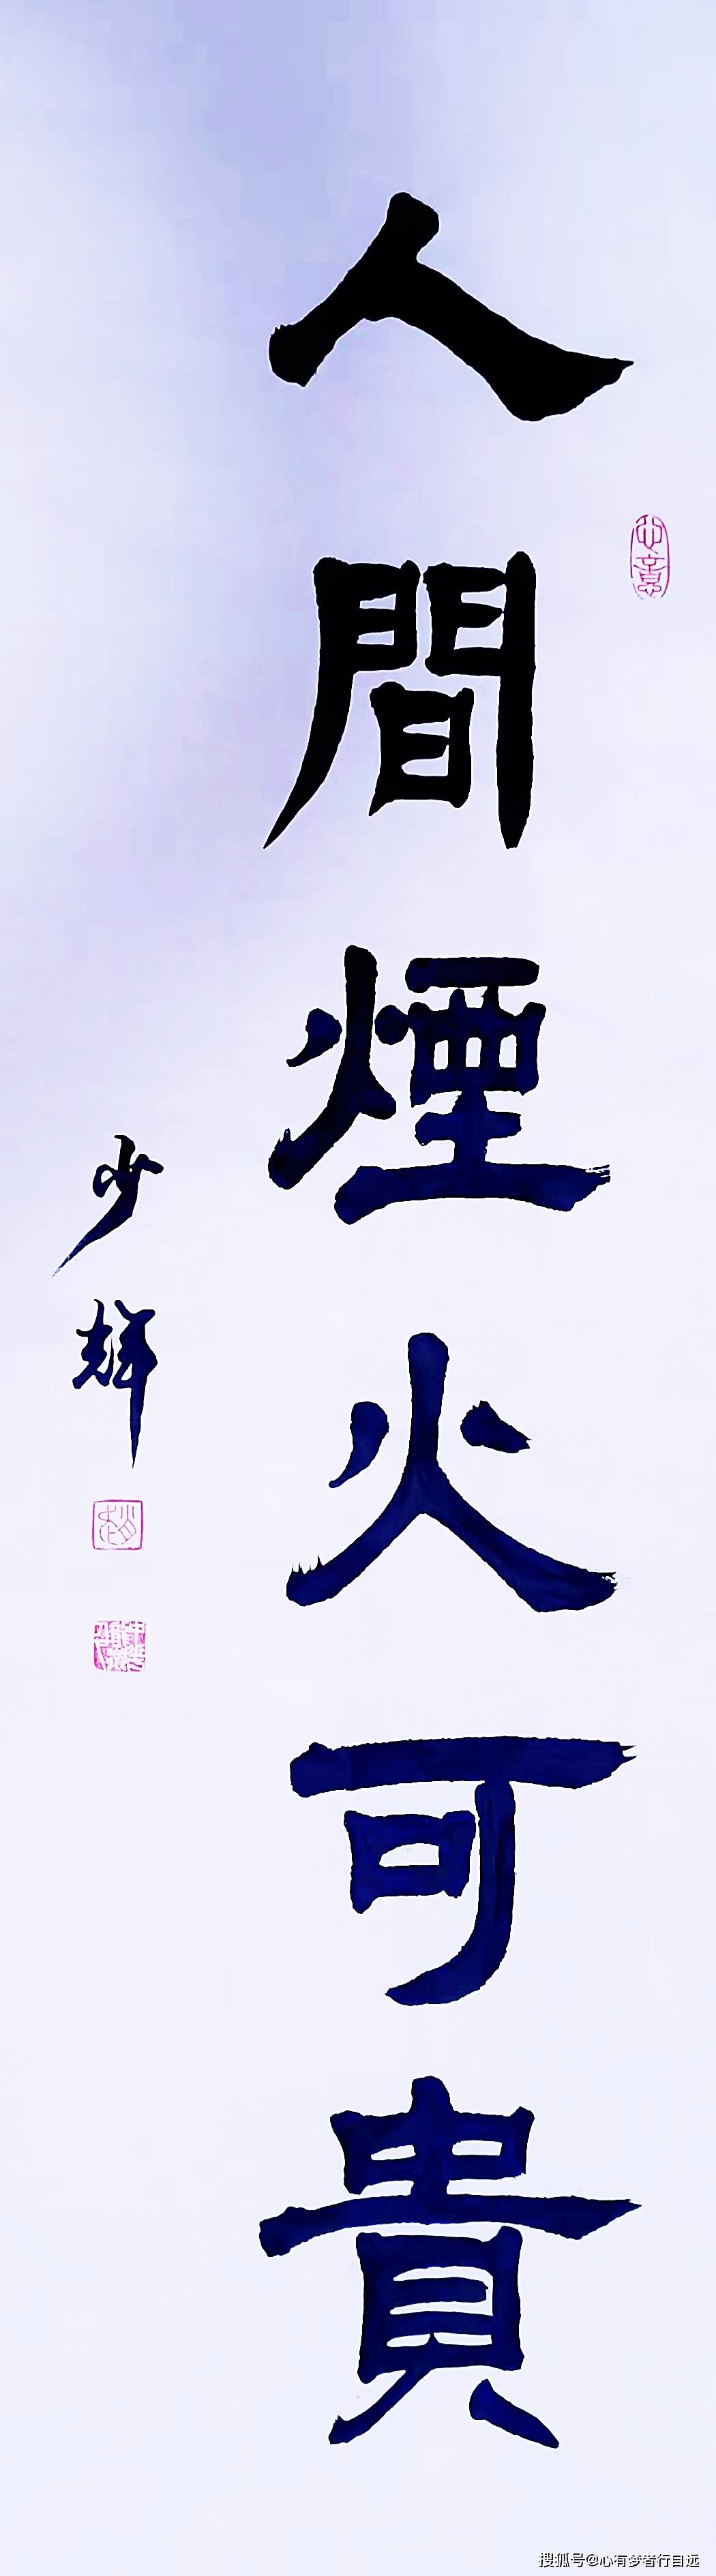 人間煙火可貴
少輝
搜狐号@心有梦者行自远